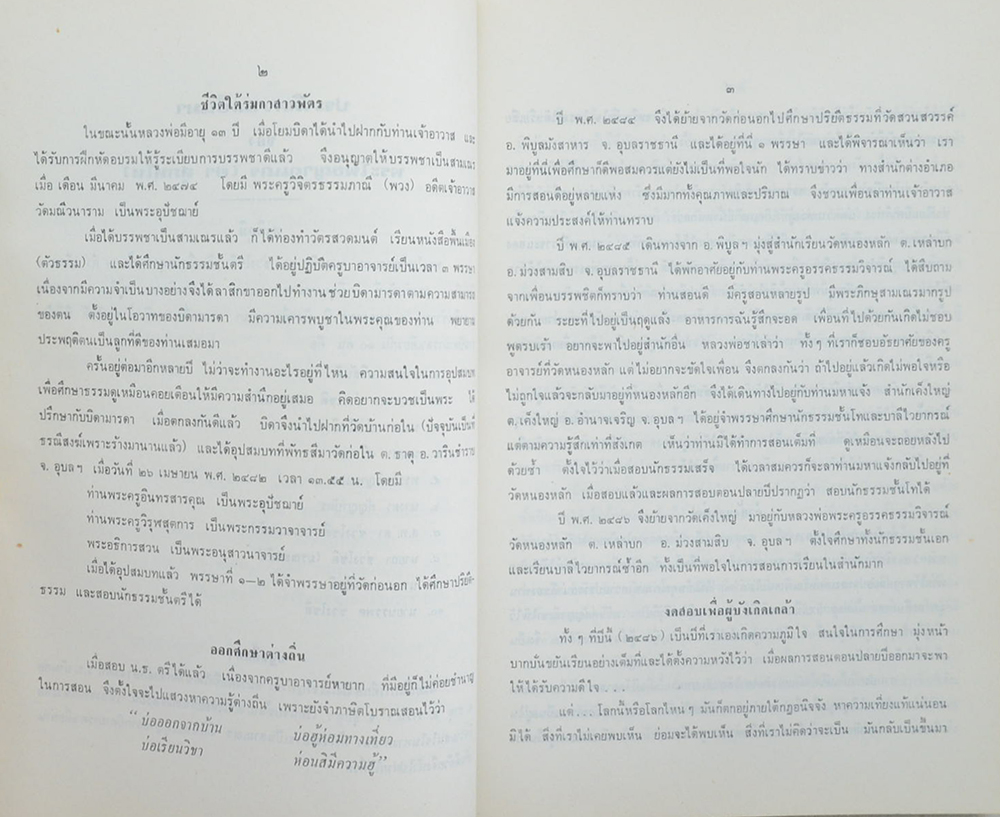 ๒
ชีวิตใต้ร่มกาสาวพัตร
ในขณะนั้นหลวงพ่อมีอายุ ๑๓ ปี เมื่อโยมบิดาได้นำไปฝากกับท่านเจ้าอาวาส และ
ได้รับการฝึกหัดอบรมให้รู้ระเบียบการบรรพชาดีแล้ว จึงอนุญาตให้บรรพชาเป็นสามเณร
เมื่อ เดือน มีนาคม พ.ศ. ๒๔๗๔ โดยมี พระครูวิจิตรธรรมภาณี (พวง) อดีตเจ้าอาวาส
วัดมณีวนาราม เป็นพระอุปัชฌาย์
เมื่อได้บรรพชาเป็นสามเณรแล้ว ก็ได้ท่องทำวัตรสวดมนต์ เรียนหนังสือพื้นเมือง
(ตัวธรรม) และได้ศึกษานักธรรมชั้นตรี ได้อยู่ปฏิบัติครูบาอาจารย์เป็นเวลา ๓ พรรษา
เนื่องจากมีความจำเป็นบางอย่างจึงได้ลาสิกขาออกไปทำงานช่วยบิดามารดาตามความสามารถ
ของตน ตั้งอยู่ในโอวาทของบิดามารดา มีความเคารพบูชาในพระคุณของท่าน พยายาม
ประพฤติตนเป็นลูกที่ดีของท่านเสมอมา
ครั้นอยู่ต่อมาอีกหลายปี ไม่ว่าจะทำงานอะไรอยู่ที่ไหน ความสนใจในการอุปสมบท
เพื่อศึกษาธรรมดูเหมือนคอยเตือนให้มีความสำนึกอยู่เสมอ คิดอยากจะบวชเป็นพระ ได้
ปรึกษากับบิดามารดา เมื่อตกลงกันดีแล้ว บิดาจึงนำไปฝากที่วัดบ้านก่อใน (ปัจจุบันเป็นที่
ธรณีสงฆ์เพราะร้างมานานแล้ว) และได้อุปสมบทที่พัทธสีมาวัดก่อใน ต. ธาตุ อ. วารินชำราบ
จ. อุบลฯ เมื่อวันที่ ๒๖ เมษายน พ.ศ. ๒๔๘๒ เวลา ๑๓.๕๕ น. โดยมี
ท่านพระครูอินทรสารคุณ เป็นพระอุปัชฌาย์
ท่านพระครูวิรุฬสุตการ เป็นพระกรรมวาจาจารย์
พระอธิการสวน เป็นพระอนุสาวนาจารย์
เมื่อได้อุปสมบทแล้ว พรรษาที่ ๑–๒ ได้จำพรรษาอยู่ที่วัดก่อนอก ได้ศึกษาปริยัติ-
ธรรม และสอบนักธรรมชั้นตรีได้
ออกศึกษาต่างถิ่น
เมื่อสอบ น.ธ. ตรีได้แล้ว เนื่องจากครูบาอาจารย์หายาก ที่มีอยู่ก็ไม่ค่อยชำนาญ
ในการสอน จึงตั้งใจจะไปแสวงหาความรู้ต่างถิ่น เพราะยังจำภาษิตโบราณสอนไว้ว่า
“บ่ออกจากบ้าน บ่อฮู้ห่อมทางเที่ยว
บ่อเรียนวิชา ห่อนสิมีความฮู้”
๓
ปี พ.ศ. ๒๔๘๔ จึงได้ย้ายจากวัดก่อนอกไปศึกษาปริยัติธรรมที่วัดสวนสวรรค์
อ. พิบูลมังสาหาร จ. อุบลราชธานี และได้อยู่ที่นี่ ๑ พรรษา และได้พิจารณาเห็นว่า เรา
มาอยู่ที่นี่เพื่อศึกษาก็ดีพอสมควรแต่ยังไม่เป็นที่พอใจนัก ได้ทราบข่าวว่า ทางสำนักต่างอำเภอ
มีการสอนดีอยู่หลายแห่ง ซึ่งมีมากทั้งคุณภาพและปริมาณ จึงชวนเพื่อนลาท่านเจ้าอาวาส
แจ้งความประสงค์ให้ท่านทราบ
ปี พ ศ. ๒๔๘๕ เดินทางจาก อ. พิบูล ฯ มุ่งสู่สำนักเรียนวัดหนองหลัก ต. เหล่าบก
อ. ม่วงสามสิบ จ. อุบลราชธานี ได้พักอาศัยอยู่กับท่านพระครูอรรคธรรมวิจารณ์ ได้สืบถาม
จากเพื่อนบรรพชิตก็ทราบว่า ท่านสอนดี มีครูสอนหลายรูป มีพระภิกษุสามเณรมากรูป
ด้วยกัน ระยะที่ไปอยู่เป็นฤดูแล้ง อาหารการฉันรู้สึกจะอด เพื่อนที่ไปด้วยกันเกิดไม่ชอบ
พูดรบเร้า อยากจะพาไปอยู่สำนักอื่น หลวงพ่อชาเล่าว่า ทั้ง ๆ ที่เราก็ชอบอัธยาศัยของครู
อาจารย์ที่วัดหนองหลัก แต่ไม่อยากจะขัดใจเพื่อน จึงตกลงกันว่า ถ้าไปอยู่แล้วเกิดไม่พอใจหรือ
ไม่ถูกใจแล้วจะกลับมาอยู่ที่หนองหลักอีก จึงได้เดินทางไปอยู่กับท่านมหาแจ้ง สำนักเค็งใหญ่
ต. เค็งใหญ่ อ. อำนาจเจริญ จ. อุบล ฯ ได้อยู่จำพรรษาศึกษานักธรรมชั้นโทและบาลีไวยากรณ์
แต่ตามความรู้สึกเท่าที่สังเกต เห็นว่าท่านมิได้ทำการสอนเต็มที่ ดูเหมือนจะถอยหลังไป
ด้วยซ้ำ ตั้งใจไว้ว่าเมื่อสอบนักธรรมเสร็จ ได้เวลาสมควรก็จะลาท่านมหาแจ้งกลับไปอยู่ที่
วัดหนองหลัก เมื่อสอบแล้วและผลการสอบตอนปลายปีปรากฏว่า สอบนักธรรมชั้นโทได้
ปี พ.ศ. ๒๔๘๖ จึงย้ายจากวัดเค็งใหญ่ มาอยู่กับหลวงพ่อพระครูอรรคธรรมวิจารณ์
วัดหนองหลัก ต. เหล่าบก อ. ม่วงสามสิบ จ. อุบล ฯ ตั้งใจศึกษาทั้งนักธรรมชั้นเอก
และเรียนบาลีไวยากรณ์ซ้ำอีก ทั้งเป็นที่พอใจในการสอนการเรียนในสำนักมาก
งดสอบเพื่อผู้บังเกิดเกล้า
ทั้ง ๆ ที่ปีนี้ (๒๔๘๖) เป็นปีที่เราเองเกิดความภูมิใจ สนใจในการศึกษา มุ่งหน้า
บากบั่นขยันเรียนอย่างเต็มที่และได้ตั้งความหวังไว้ว่า เมื่อผลการสอบตอนปลายปีออกมาจะพา
ให้ได้รับความดีใจ . . .
แต่. . . โลกนี้หรือโลกไหน ๆ มันก็ตกอยู่ภายใต้กฎอนิจจัง หาความเที่ยงแท้แน่นอน
มิได้ สิ่งที่เราไม่เคยพบเห็น ย่อมจะได้พบเห็น สิ่งที่เราไม่คิดว่าจะเป็น มันกลับเป็นขึ้นมา